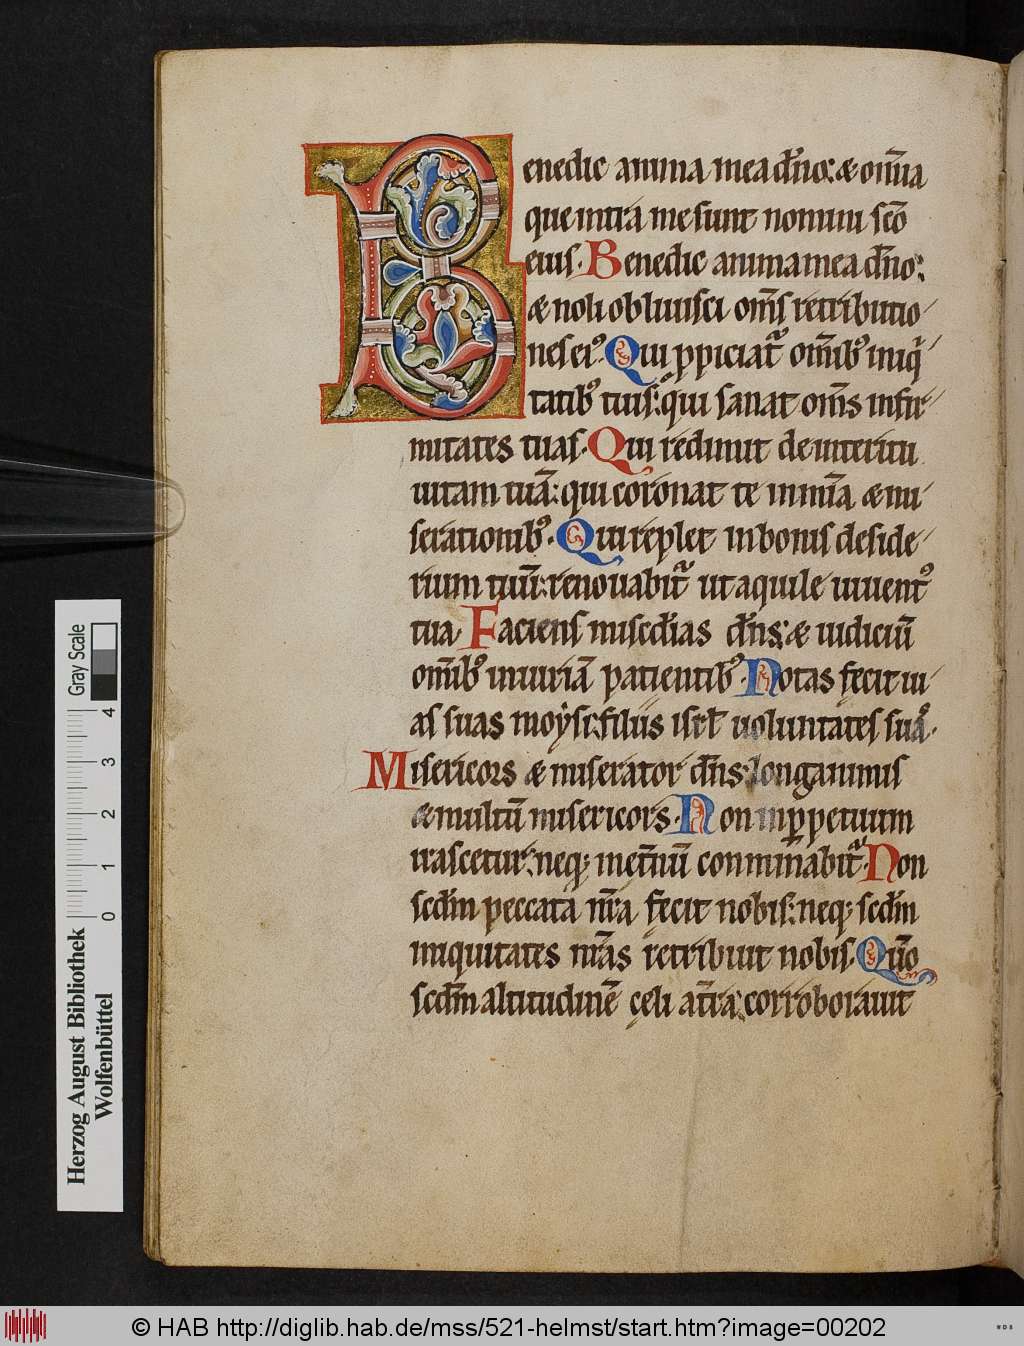 Benedic anima mea dn̄o: & om̄ia
que intra me sunt nomini sc̄o
eius. Benedic anima mea dn̄o:
& noli obliuisci om̄s retributio
nes ei⁹. Qui ꝓpiciat᷑ om̄ib⁹ iniq̇
tatib⁹ tuis: qui sanat om̄s infir
mitates tuas. Qui redimit de interitu
uitam tuā: qui coronat te in mīa & mi
serationib⁹. Qui replet in bonis deside
rium tuū: renouabit᷑ ut aquile iuuent⁹
tua. Faciens mis̄c̄dias dn̄s: & iudiciū
om̄ib⁹ iniuriā patientib⁹. Notas fecit ui
as suas moysi: filiis isrł uoluntates suas.
Misericors & miserator dn̄s: longanimis
& multū misericors. Non in ꝑpetuum
irascetur: neq; inet̄nū comminabit᷑. Non
sc̄dm peccata nr̄a fecit nobis: neq; sc̄dm
iniquitates nr̄as retribuit nobis. Qm̄o
sc̄dm altitudinē cęli a tr̄a: corroborauit
Gray Scale
0 1 2 3 4
Herzog August Bibliothek
Wolfenbüttel
© HAB http://diglib.hab.de/mss/521-helmst/start.htm?image=00202